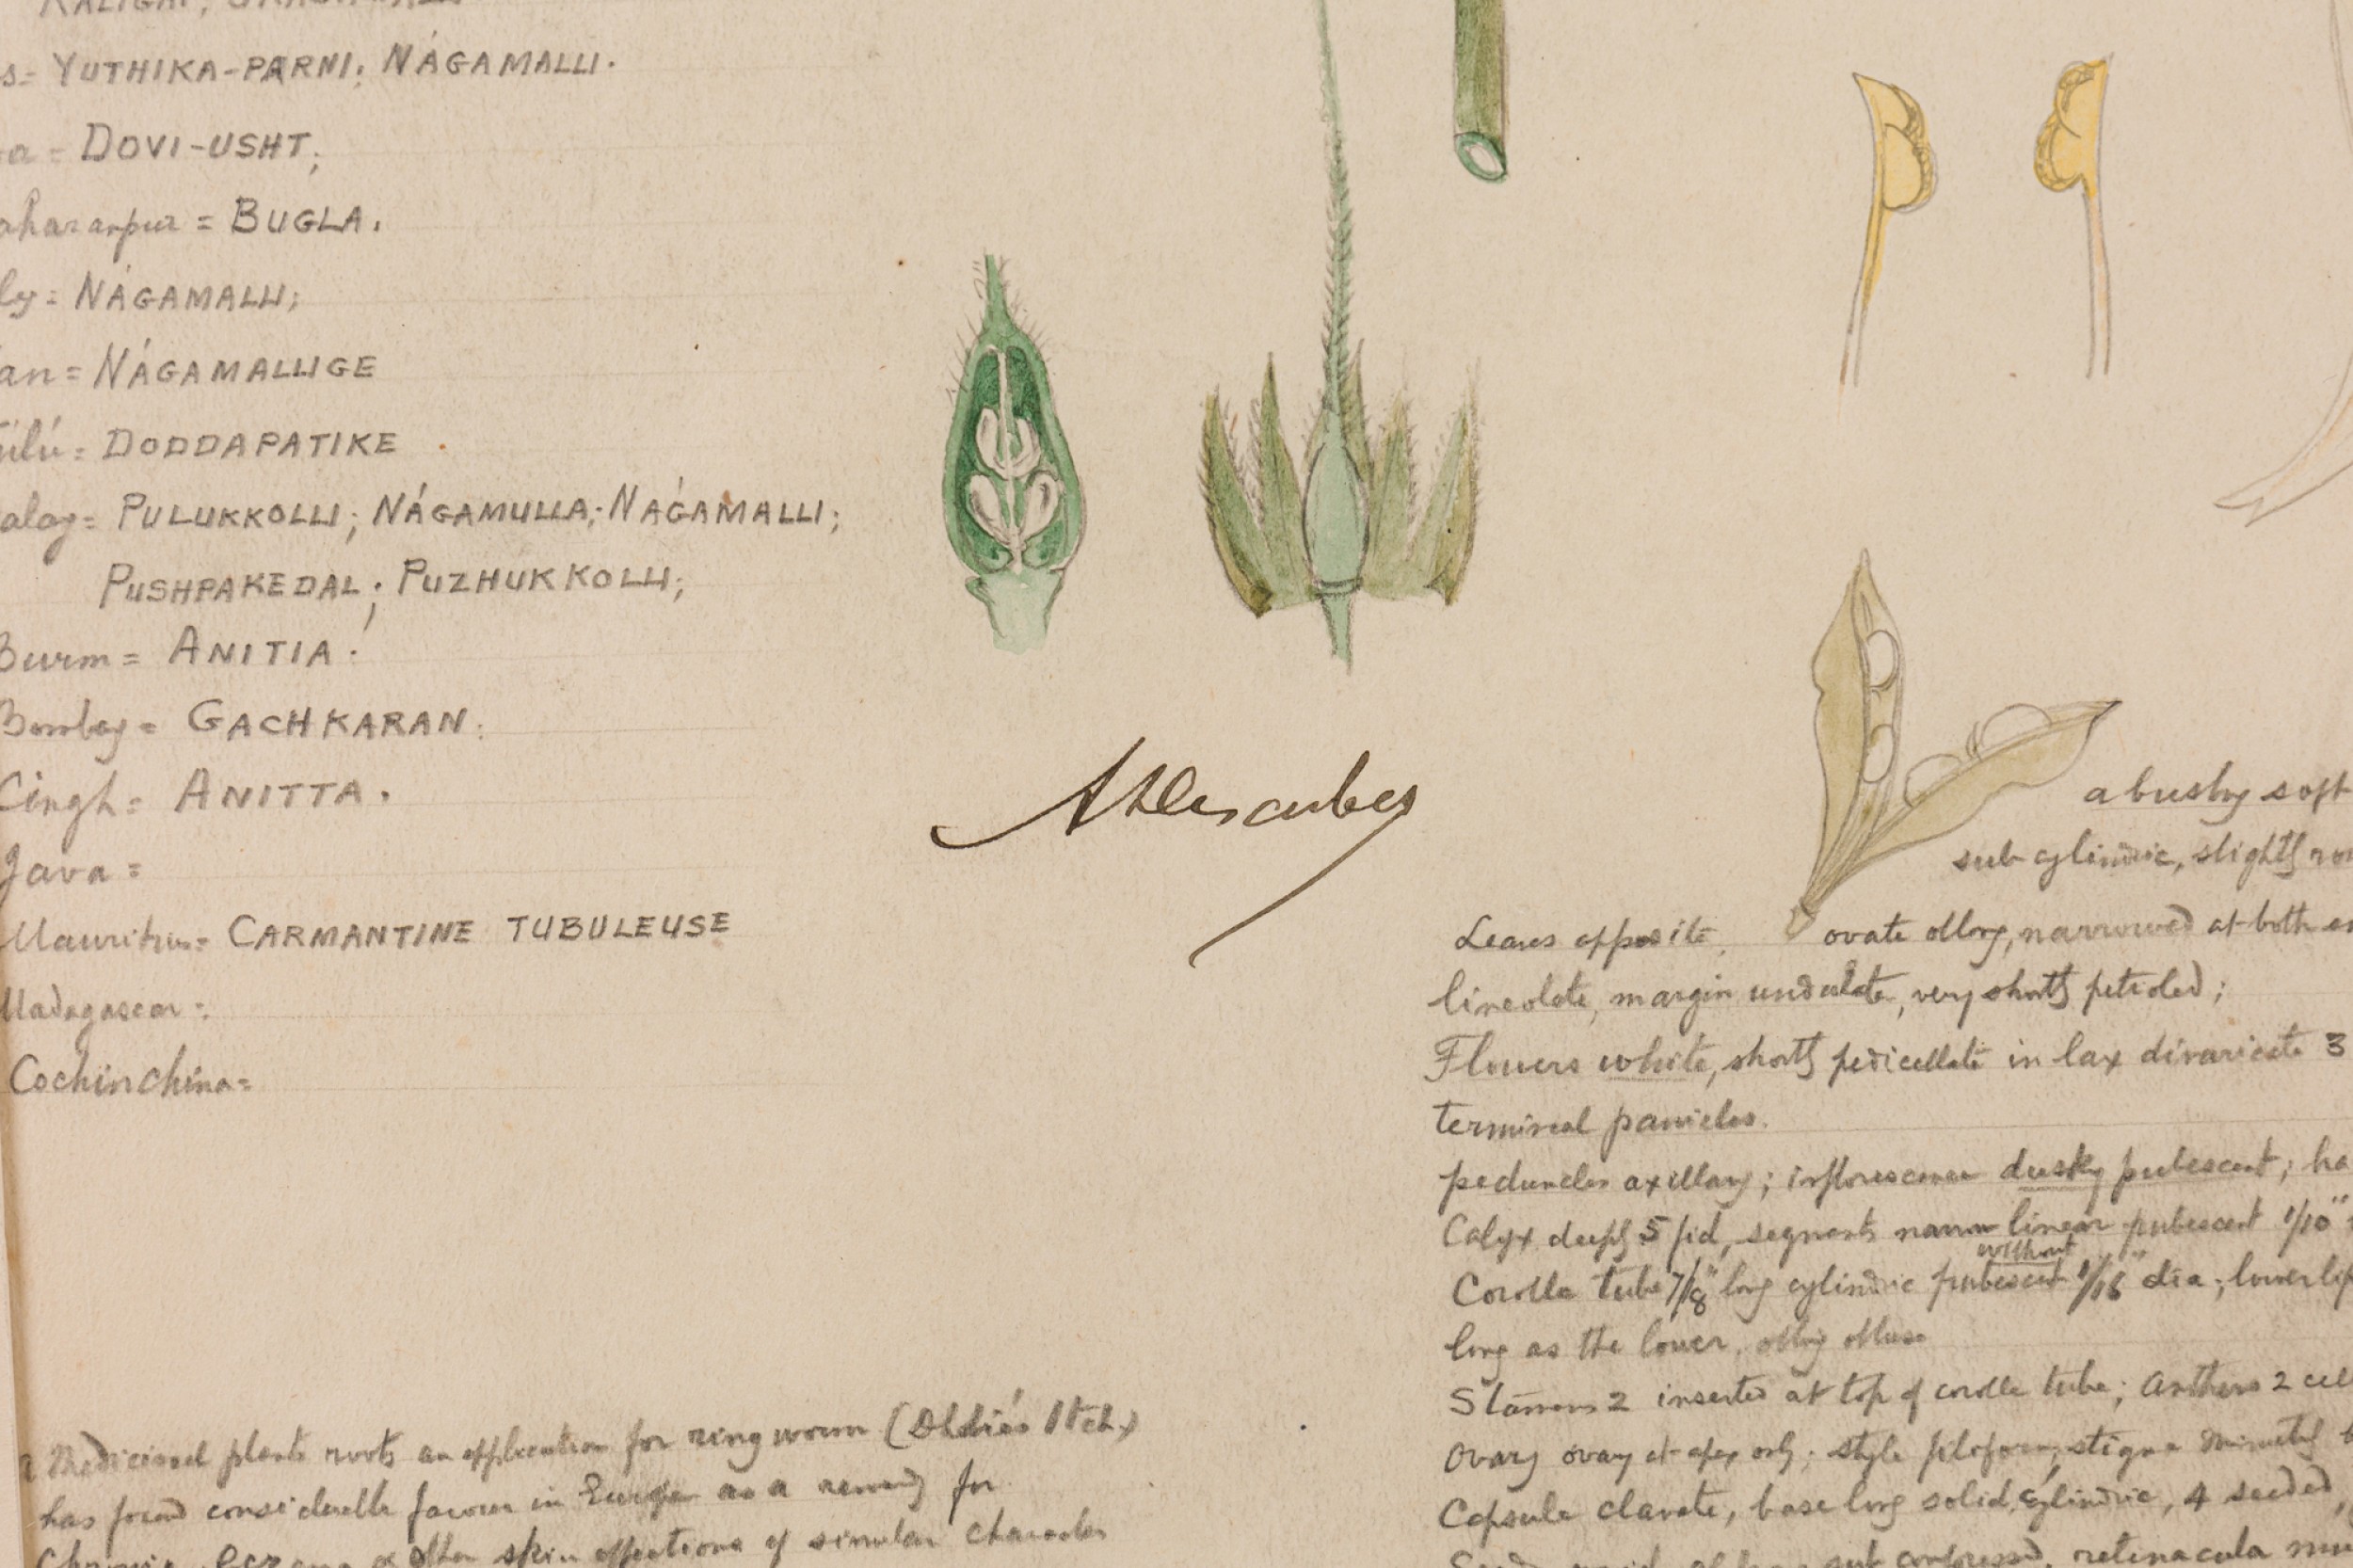 KALIGAI;
s= YUTHIKA-PARNI; NÁGAMALLI.
a = DOVI-USHT;
aharanpur = BUGLA.
ly= NÁGAMALLI;
an= NÁGAMALLIGE
úlú= DODDAPATIKE
alay= PULUKKOLLI; NÁGAMULLA; NAǴAMALLI;
PUSHPAKEDAL; PUZHUKKOLLI;
Burm= ANITIA.
Bombay= GACHKARAN.
Cingh= ANITTA.
Java=
Mauritius= CARMANTINE TUBULEUSE
Madagascar=
Cochinchina=
a bushy soft
sub cylindric, slightly
Leaves opposite, ovate oblong, narrowed at both
lineolate, margin undulate, very shortly petioled;
Flowers white, shortly pedicellate in lax divaricate 3
terminal panicles.
peduncles axillary; inflorescence dusky pubescent; ha
Calyx deeply 5 fid, segments narrow linear pubescent 1/10"
without
Corolla tube 7/8" long cylindric pubescent 1/16" dia; lower lip
long as the lower, oblong obtuse
Stamens 2 inserted at top of corolla tube; anthers 2 cell
Ovary at apex only; style filiform, stigma minutely b
Capsule clavate, base long solid, cylindric, 4 seeded,
sub compressed, retinacula
a Medicinal plants roots an application for ringworm (Dhobie's Itch)
has found considerable favour in Europe as a remedy for
Chronic Eczema & other skin affections of similar character